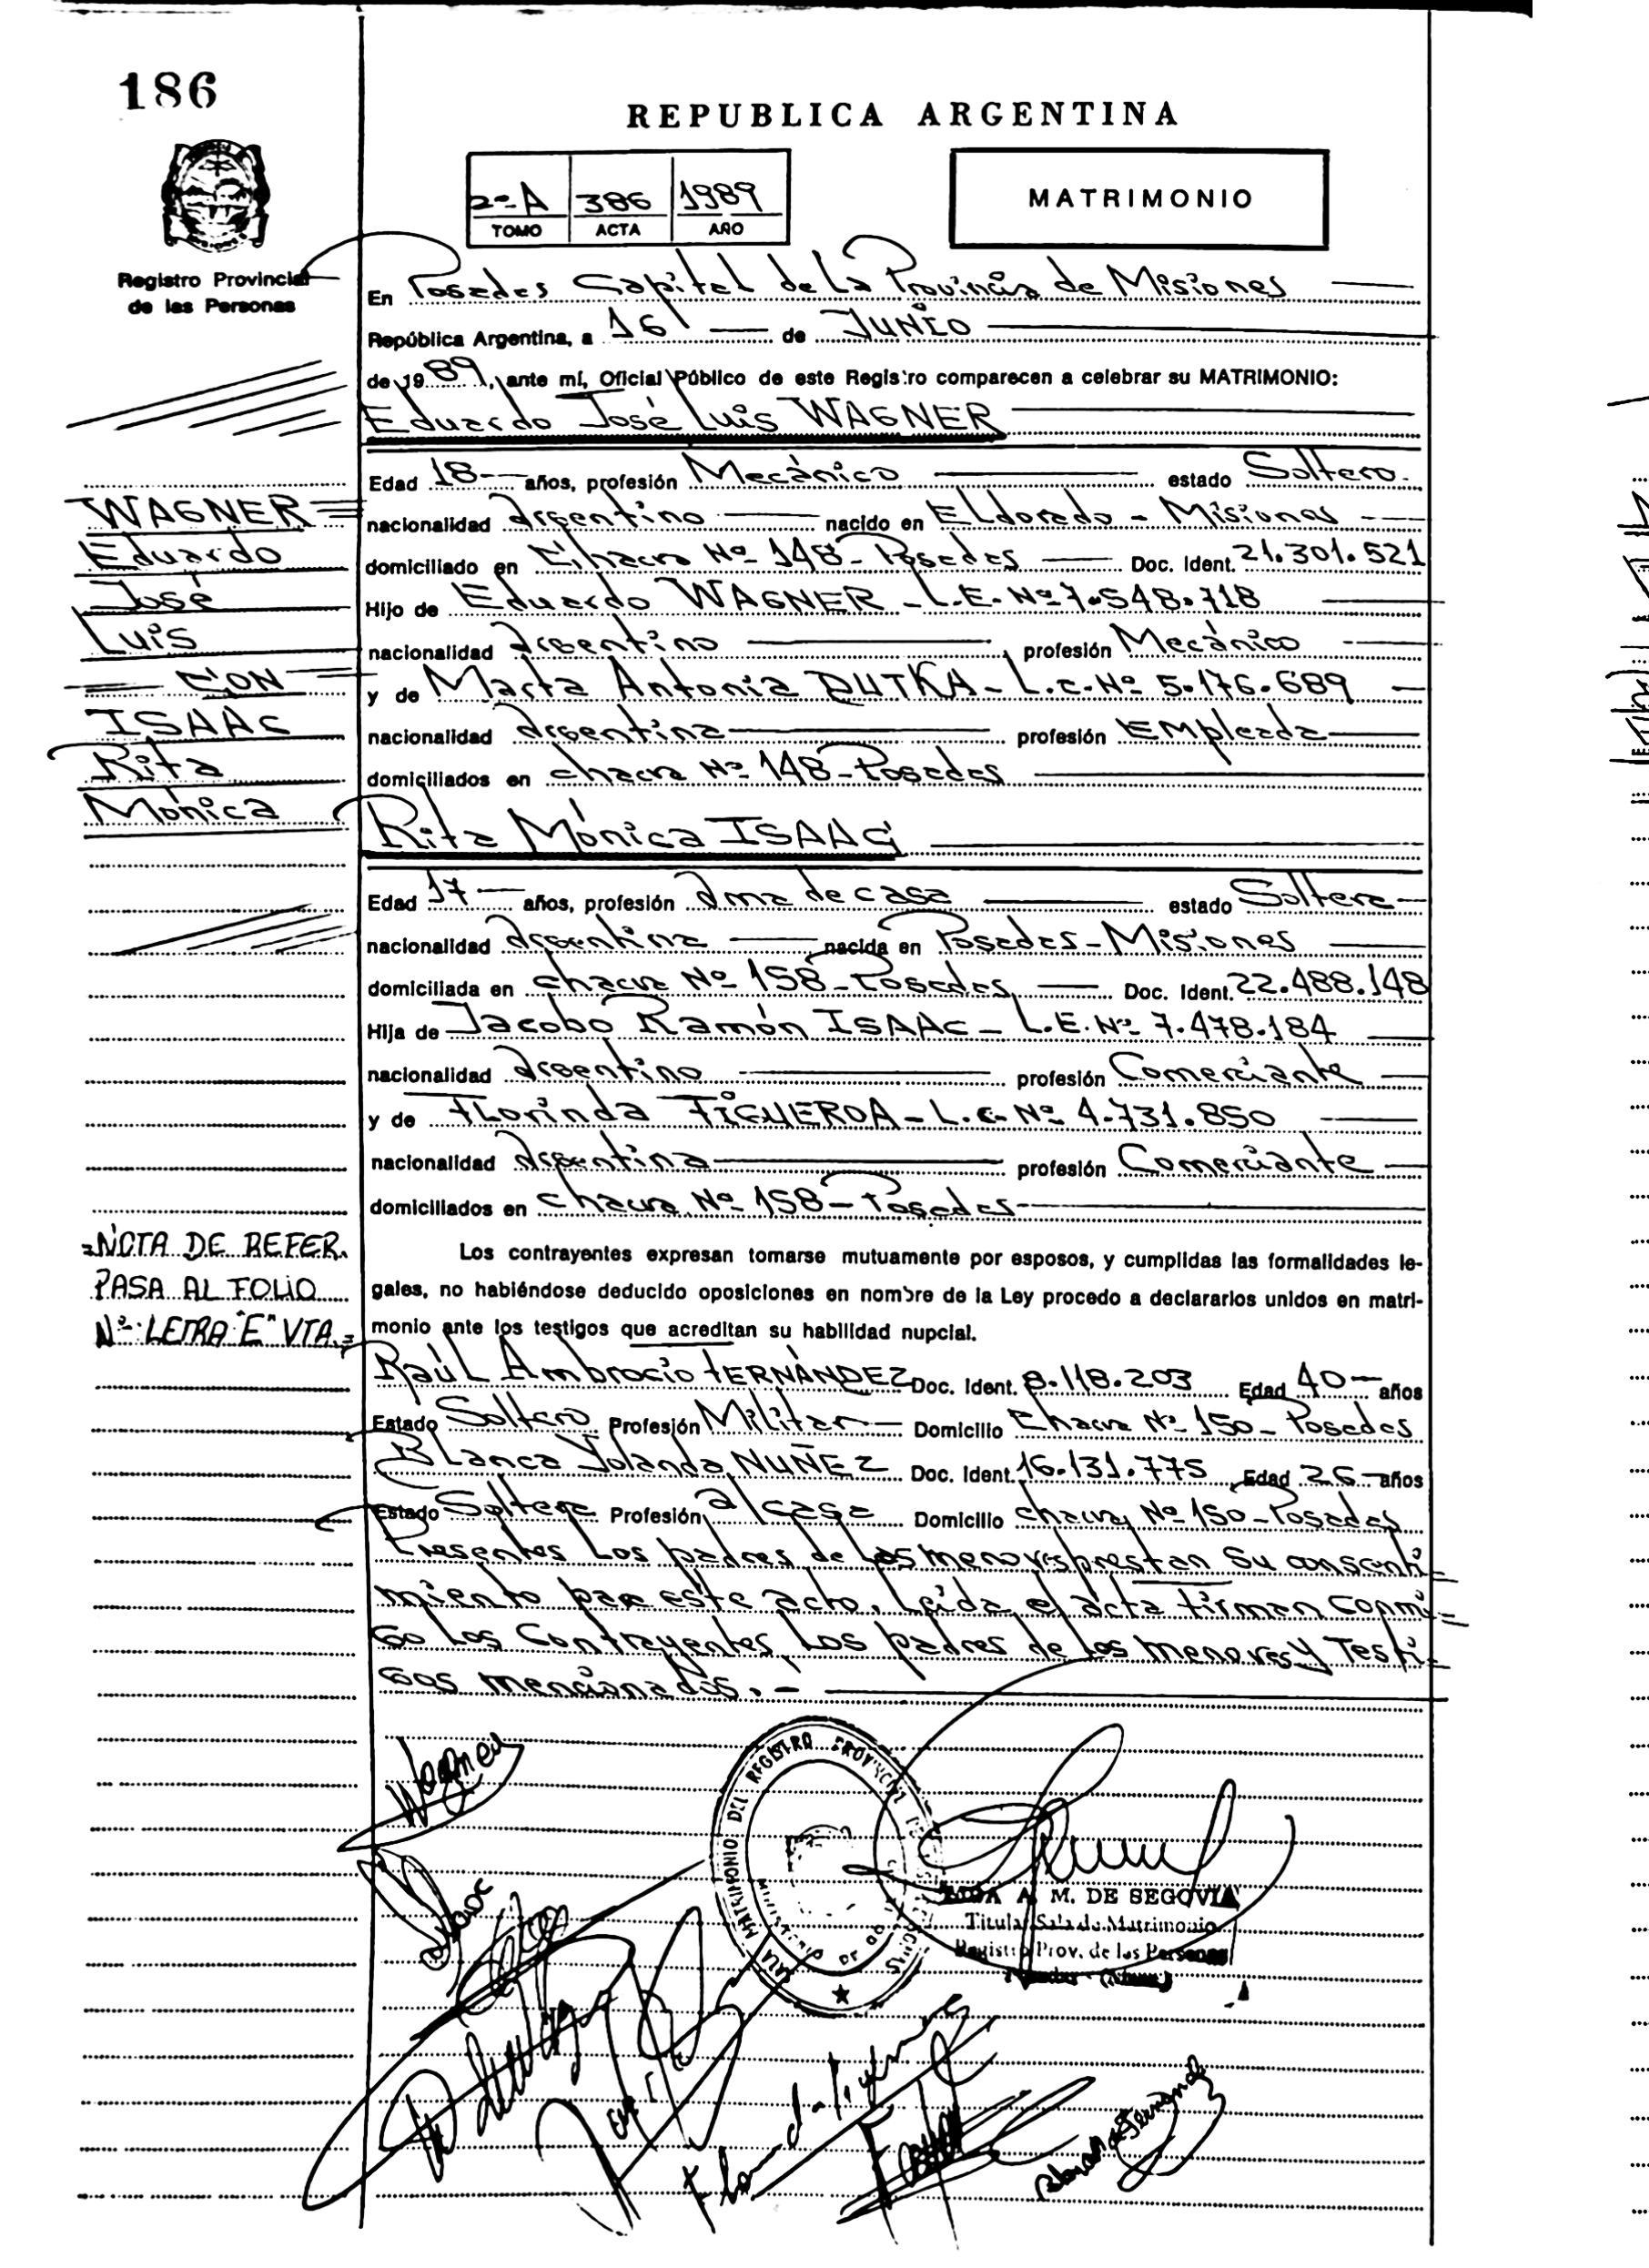 186
REPUBLICA ARGENTINA
2º A 386 1989
TOMO ACTA AÑO
MATRIMONIO
Registro Provincial
de las Personas
En Posadas Capital de La Provincia de Misiones
República Argentina, a 16 de JUNIO
de 1989, ante mí, Oficial Público de este Registro comparecen a celebrar su MATRIMONIO:
Eduardo José Luis WAGNER
Edad 18 años, profesión Mecánico estado Soltero
nacionalidad Argentino nacido en Eldorado - Misiones
domiciliado en Chacra Nº 148 - Posadas Doc. Ident. 21.301.521
Hijo de Eduardo WAGNER - L.E. Nº 7.548.718
nacionalidad Argentino profesión Mecánico
y de Marta Antonia DUTKA - L.C. Nº 5.176.689
nacionalidad Argentina profesión EMpleada
domiciliados en chacra Nº 148 - Posadas
Rita Mónica ISAAC
Edad 17 años, profesión Ama de casa estado Soltera
nacionalidad Argentina nacida en Posadas - Misiones
domiciliada en chacra Nº 158 - Posadas Doc. Ident. 22.488.148
Hija de Jacobo Ramón ISAAC - L.E. Nº 7.478.184
nacionalidad Argentino profesión Comerciante
y de FLorinda FIGUEROA - L.C. Nº 4.731.850
nacionalidad Argentina profesión Comerciante
domiciliados en chacra Nº 158 - Posadas
WAGNER
Eduardo
José
Luis
= CON =
ISAAC
Rita
Mónica
=NOTA DE REFER.
PASA AL FOLIO
Nº LETRA "E" VTA.=
Los contrayentes expresan tomarse mutuamente por esposos, y cumplidas las formalidades le-
gales, no habiéndose deducido oposiciones en nombre de la Ley procedo a declararlos unidos en matri-
monio ante los testigos que acreditan su habilidad nupcial.
Raúl Ambrocio FERNÁNDEZ Doc. Ident. 8.118.203 Edad 40 años
Estado Soltero Profesión Militar Domicilio Chacra Nº 150 - Posadas
BLanca Yolanda NUÑEZ Doc. Ident. 16.131.775 Edad 26 años
Estado Soltera Profesión a/casa Domicilio chacra Nº 150 - Posadas
Presentes Los padres de Los menores prestan Su consenti=
miento par este acto. Leída el acta firman conmi=
go Los Contrayentes, Los padres de los menores y Testi=
gos mencionados.-
Wagner
Isaac
SALA MATRIMONIO DEL REGISTRO PROVINCIAL DE LAS PERSONAS
MINISTERIO DE GO
A. M. DE SEGOVIA
Titular Sala de Matrimonio
Registro Prov. de las Personas